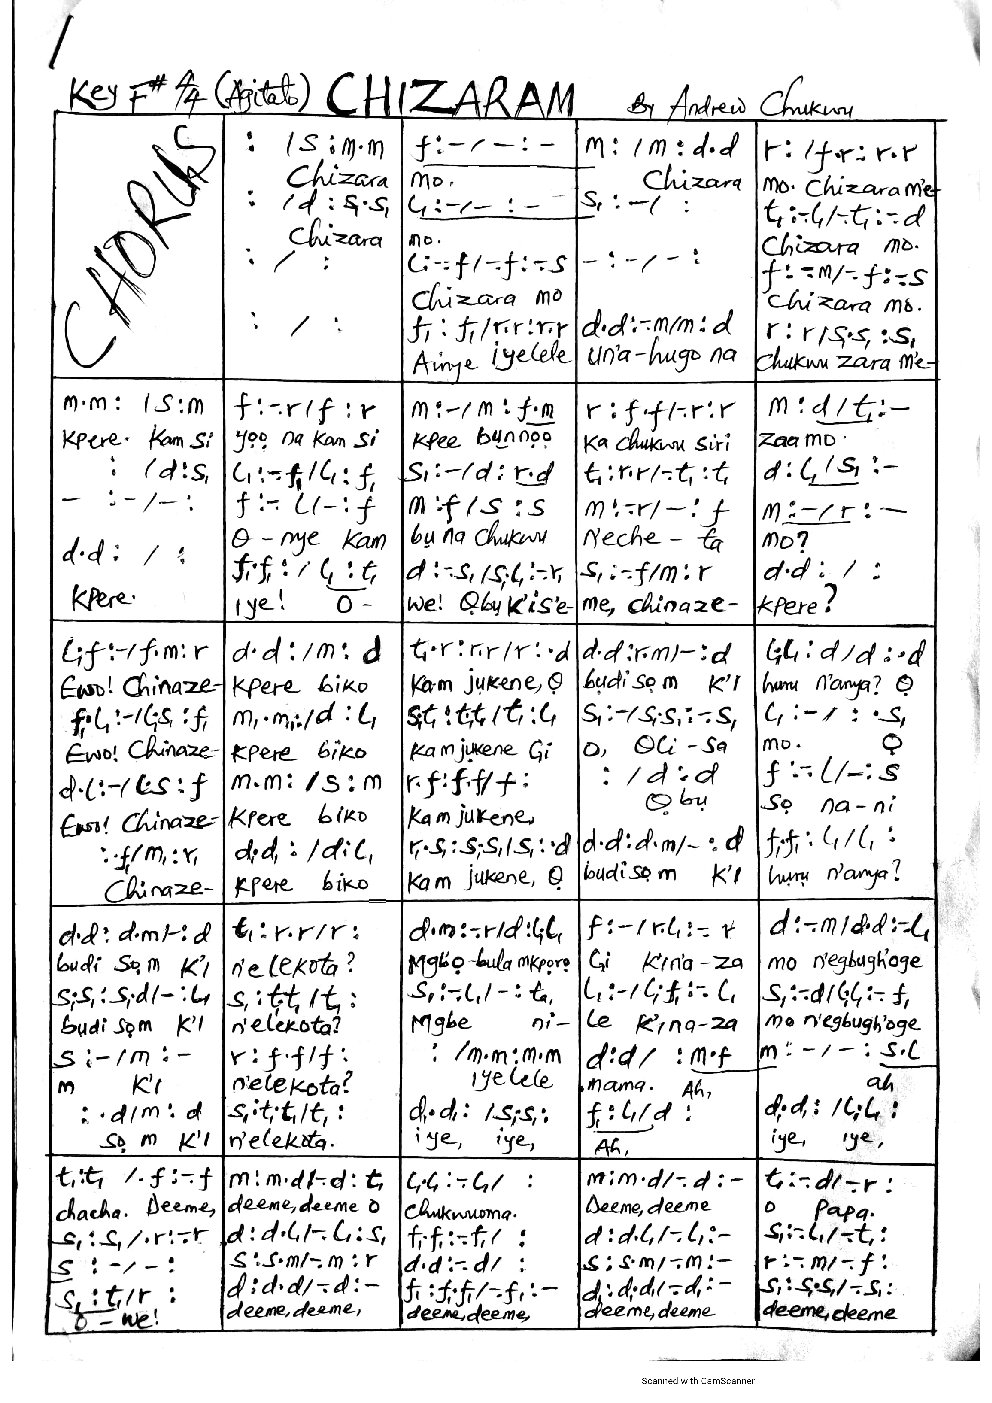 Key F# 4/4 (Agitato) CHIZARAM By Andrew Chukwu
CHORUS
: / s : m.m
Chizara
: / d : s₁.s₁
Chizara
: / :
: / :
f : - / - : -
mo.
l₁ : - / - : -
mo.
l₁ : -. f / -. f : -. s
Chizara mo
f₁ : f₁ / r.r : r.r
Ainye iyelele
m : / m : d.d
Chizara
s₁ : - / :
- : - / - :
d.d : -.m / m : d
Un'a-hugo na
r : / f.r : r.r
mo. Chizara m'e-
t₁ : -.l₁ / -.t₁ : -.d
Chizara mo.
f : -.m / -.f : -.s
Chizara mo.
r : r / s₁.s₁ : s₁
Chukwu zara m'e-
m.m : / s : m
kpere. Kam si
: / d : s₁
- : - / - :
d.d : / :
kpere.
f : -.r / f : r
yọọ na kam si
l₁ : -.f₁ / l₁ : f₁
f : -. l / - : f
O - nye kam
f₁.f₁ : / l₁ : t₁
iye! O-
m : - / m : f.m
kpee bụnọọ
s₁ : - / d : r.d
m : f / s : s
bụ na Chukwu
d : -.s₁ / s₁.l₁ : -.r
we! Ọbụ k'is'e-
r : f.f / -.r : r
ka chukwu siri
t₁ : r.r / -.t₁ : t₁
m : -.r / - : f
N'eche - ta
s₁ : -.f / m : r
me, chinaze-
m : d / t₁ : -
zaa mo.
d : l₁ / s₁ : -
m : - / r : -
mo?
d.d : / :
kpere?
l.f : - / f.m : r
Ewo! Chinaze-
f₁.l₁ : - / l₁.s₁ : f₁
Ewo! Chinaze-
d.l : - / l.s : f
Ewo! Chinaze-
: . f₁ / m₁ : r₁
Chinaze-
d.d : / m : d
kpere biko
m₁.m₁ : / d : l₁
kpere biko
m.m : / s : m
kpere biko
d₁.d₁ : / d : l₁
kpere biko
t₁.r : r.r / r : .d
Kam jukene, Ọ
s₁.t₁ : t₁.t₁ / t₁ : l₁
Kam jukene Gi
r.f : f.f / f :
Kam jukene,
r₁.s₁ : s₁.s₁ / s₁ : .d
Kam jukene, Ọ
d.d : r.m / - : d
budi sọ m K'I
s₁ : - / s₁.s₁ : -.s₁
O, Oli - sa
: / d : d
Ọ bụ
d.d : d.m / - : d
budi sọ m K'I
l₁.l₁ : d / d : .d
hụrụ n'anya? Ọ
l₁ : - / : .s₁
mo. Ọ
f : -. l / - : s
sọ na-ni
f₁.f₁ : l₁ / l₁ :
hụrụ n'anya?
d.d : d.m / - : d
budi sọ m K'I
s₁.s₁ : s₁.d / - : l₁
budi sọ m K'I
s : - / m : -
m K'I
: . d / m : d
sọ m K'I
t₁ : r.r / r :
n'elekota?
s₁ : t₁.t₁ / t₁ :
n'elekota?
r : f.f / f :
n'elekota?
s₁ : t₁.t₁ / t₁ :
n'elekota.
d.m : -.r / d : l₁.l₁
Mgbọ-bula mkpọrọ
s₁ : -.l₁ / - : t₁
Mgbe ni-
: / m.m : m.m
iyelele
d₁.d₁ : / s₁.s₁ :
iye, iye,
f : - / r.l₁ : -. r
Gi K'ina-za
l₁ : - / l₁.f₁ : -. l₁
le K'ina-za
d.d / : m.f
mama. Ah,
f₁ : l₁ / d :
Ah,
d : -.m / d.d : -.l₁
mo n'egbugh'oge
s₁ : -.d / l₁.l₁ : -. f₁
mo n'egbugh'oge
m : - / - : s.l
ah
d₁.d₁ : / l₁.l₁ :
iye, iye,
t₁ : t₁ / . f : -. f
chacha. Deeme,
s₁ : s₁ / . r : -. r
s : - / - :
s₁ : t₁ / r :
O - we!
m : m.d / -. d : t₁
deeme, deeme O
d : d.l₁ / -. l₁ : s₁
s : s.m / -. m : r
d : d.d / -. d : -
deeme, deeme,
l₁.l₁ : -. l₁ / :
Chukwuoma.
f₁.f₁ : -.f₁ / :
d.d : -.d / :
f₁ : f₁.f₁ / -.f₁ : -
deeme, deeme,
m : m.d / -. d : -
Deeme, deeme
d : d.l₁ / -. l₁ : -
s : s.m / -. m : -
d₁ : d₁.d₁ / -.d₁ : -
deeme, deeme
t₁ : -.d / -. r :
O Papa.
s₁ : -.l₁ / -. t₁ :
r : -. m / -. f :
s₁ : s₁.s₁ / -. s₁ :
deeme, deeme
Scanned with CamScanner